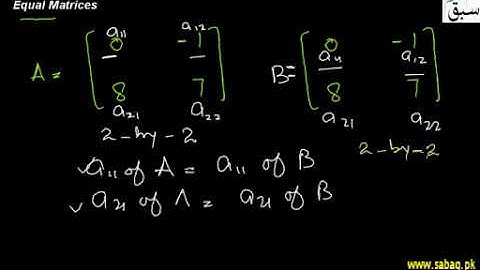 Equal Matrices
سبق
a₁₁ a₁₂
A = [ 0 -1
8 7 ]
a₂₁ a₂₂
2-by-2
B = [ 0 -1
a₁₁ a₁₂
8 7 ]
a₂₁ a₂₂
2-by-2
✓a₁₁ of A = a₁₁ of B
✓a₂₁ of A = a₂₁ of B
www.sabaq.pk